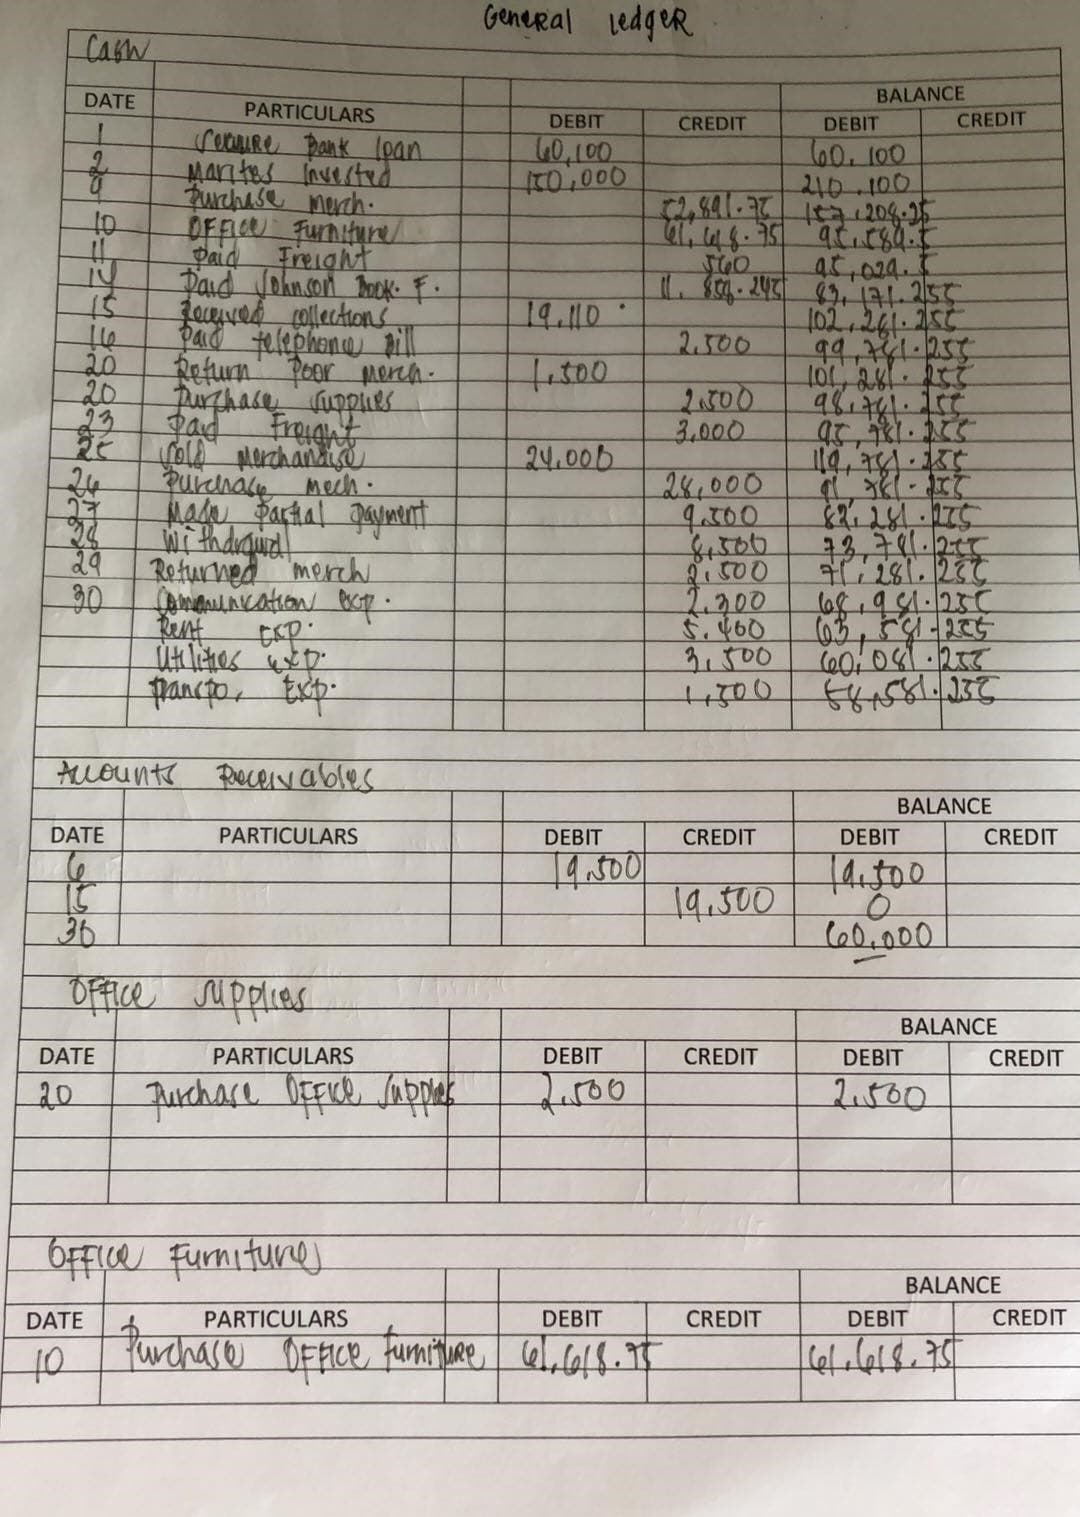 General Ledger
Cash
BALANCE
DATE PARTICULARS DEBIT CREDIT DEBIT CREDIT
1 Secure Bank loan 60,100 60,100
2 Marites Invested 150,000 210,100
9 Purchase merch. 52,891.75 157,208.25
10 Office Furniture 61,618.75 95,589.5
11 Paid Freight 560 95,029.5
14 Paid Johnson Book. F. 11,858.245 83,171.255
15 Received collections 19,110 102,281.255
16 Paid telephone Bill 2,500 99,781.255
20 Return Poor merch. 1,500 101,281.255
20 Purchase supplies 2,500 98,781.255
23 Paid Freight 3,000 95,781.255
25 Sold Merchandise 24,000 119,781.255
26 Purchase mech. 28,000 91,781.255
27 Made Partial payment 9,500 82,281.255
28 8,500 73,781.255
29 Returned merch 2,500 71,281.255
30 Communication exp. 2,300 68,981.255
Rent Exp. 5,400 63,581.255
Utilities exp. 3,500 60,081.255
Transpo, Exp. 1,500 58,581.255
Accounts Receivables
BALANCE
DATE PARTICULARS DEBIT CREDIT DEBIT CREDIT
6 19,500 19,500
15 19,500 0
30 60,000
Office supplies
BALANCE
DATE PARTICULARS DEBIT CREDIT DEBIT CREDIT
20 Purchase Office Supplies 2,500 2,500
Office Furniture
BALANCE
DATE PARTICULARS DEBIT CREDIT DEBIT CREDIT
10 Purchase Office Furniture 61,618.75 61,618.75